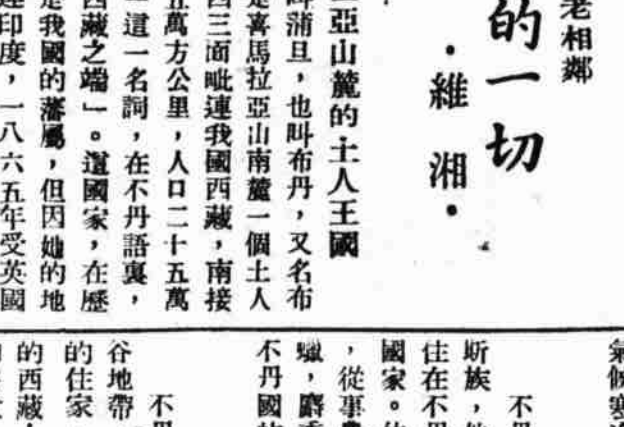 老相鄰
的一切
·維湘·
亞山麓的土人王國
蒲旦，也叫布丹，又名布
是喜馬拉亞山南麓一個土人
西三面毗連我國西藏，南接
五萬方公里，人口二十五萬
這一名詞，在不丹語裏，
西藏之端」。這國家，在歷
是我國的藩屬，但因她的地
連印度，一八六五年受英國
氣候
不丹
斯族，
住在不丹
國家。
，從事
蠟，麝
不丹國
不丹
谷地帶
的住家
的西藏